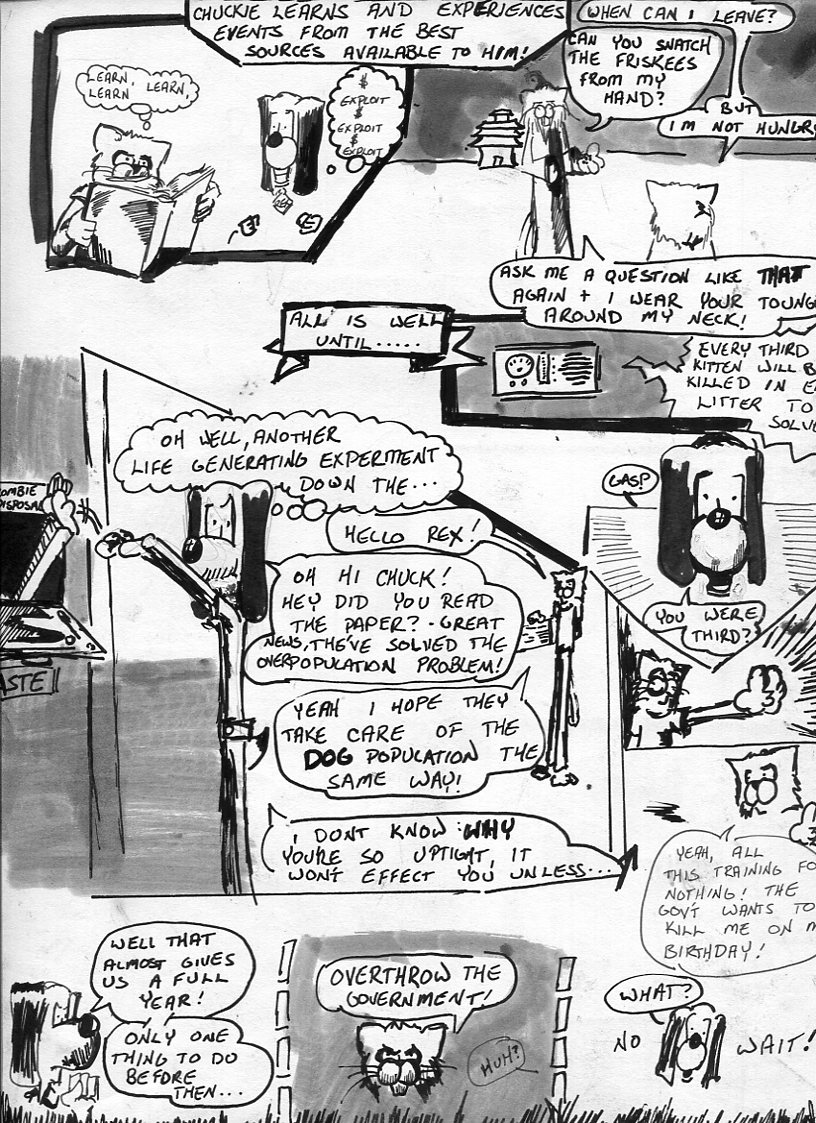 CHUCKIE LEARNS AND EXPERIENCES
EVENTS FROM THE BEST
SOURCES AVAILABLE TO HIM!
LEARN,
LEARN, LEARN,
$
EXPLOIT
$
EXPLOIT
$
EXPLOIT
WHEN CAN I LEAVE?
CAN YOU SNATCH
THE FRISKEES
FROM MY
HAND?
BUT
I'M NOT HUNGRY
ASK ME A QUESTION LIKE THAT
AGAIN + I WEAR YOUR TOUNG
AROUND MY NECK!
ALL IS WELL
UNTIL.....
EVERY THIRD
KITTEN WILL B
KILLED IN E
LITTER TO
SOLV
OH WELL, ANOTHER
LIFE GENERATING EXPERMENT
DOWN THE...
OMBIE
DISPOSAL
ASTE
HELLO REX!
OH HI CHUCK!
HEY DID YOU READ
THE PAPER? - GREAT
NEWS, THE'VE SOLVED THE
OVERPOPULATION PROBLEM!
YEAH I HOPE THEY
TAKE CARE OF THE
DOG POPULATION THE
SAME WAY!
I DONT KNOW WHY
YOU'RE SO UPTIGHT, IT
WON'T EFFECT YOU UNLESS...
GASP
YOU WERE
THIRD?
YEAH, ALL
THIS TRAINING FO
NOTHING! THE
GOV'T WANTS TO
KILL ME ON M
BIRTHDAY!
WELL THAT
ALMOST GIVES
US A FULL
YEAR!
ONLY ONE
THING TO DO
BEFORE
THEN...
OVERTHROW THE
GOVERNMENT!
HUH?
WHAT?
NO WAIT!